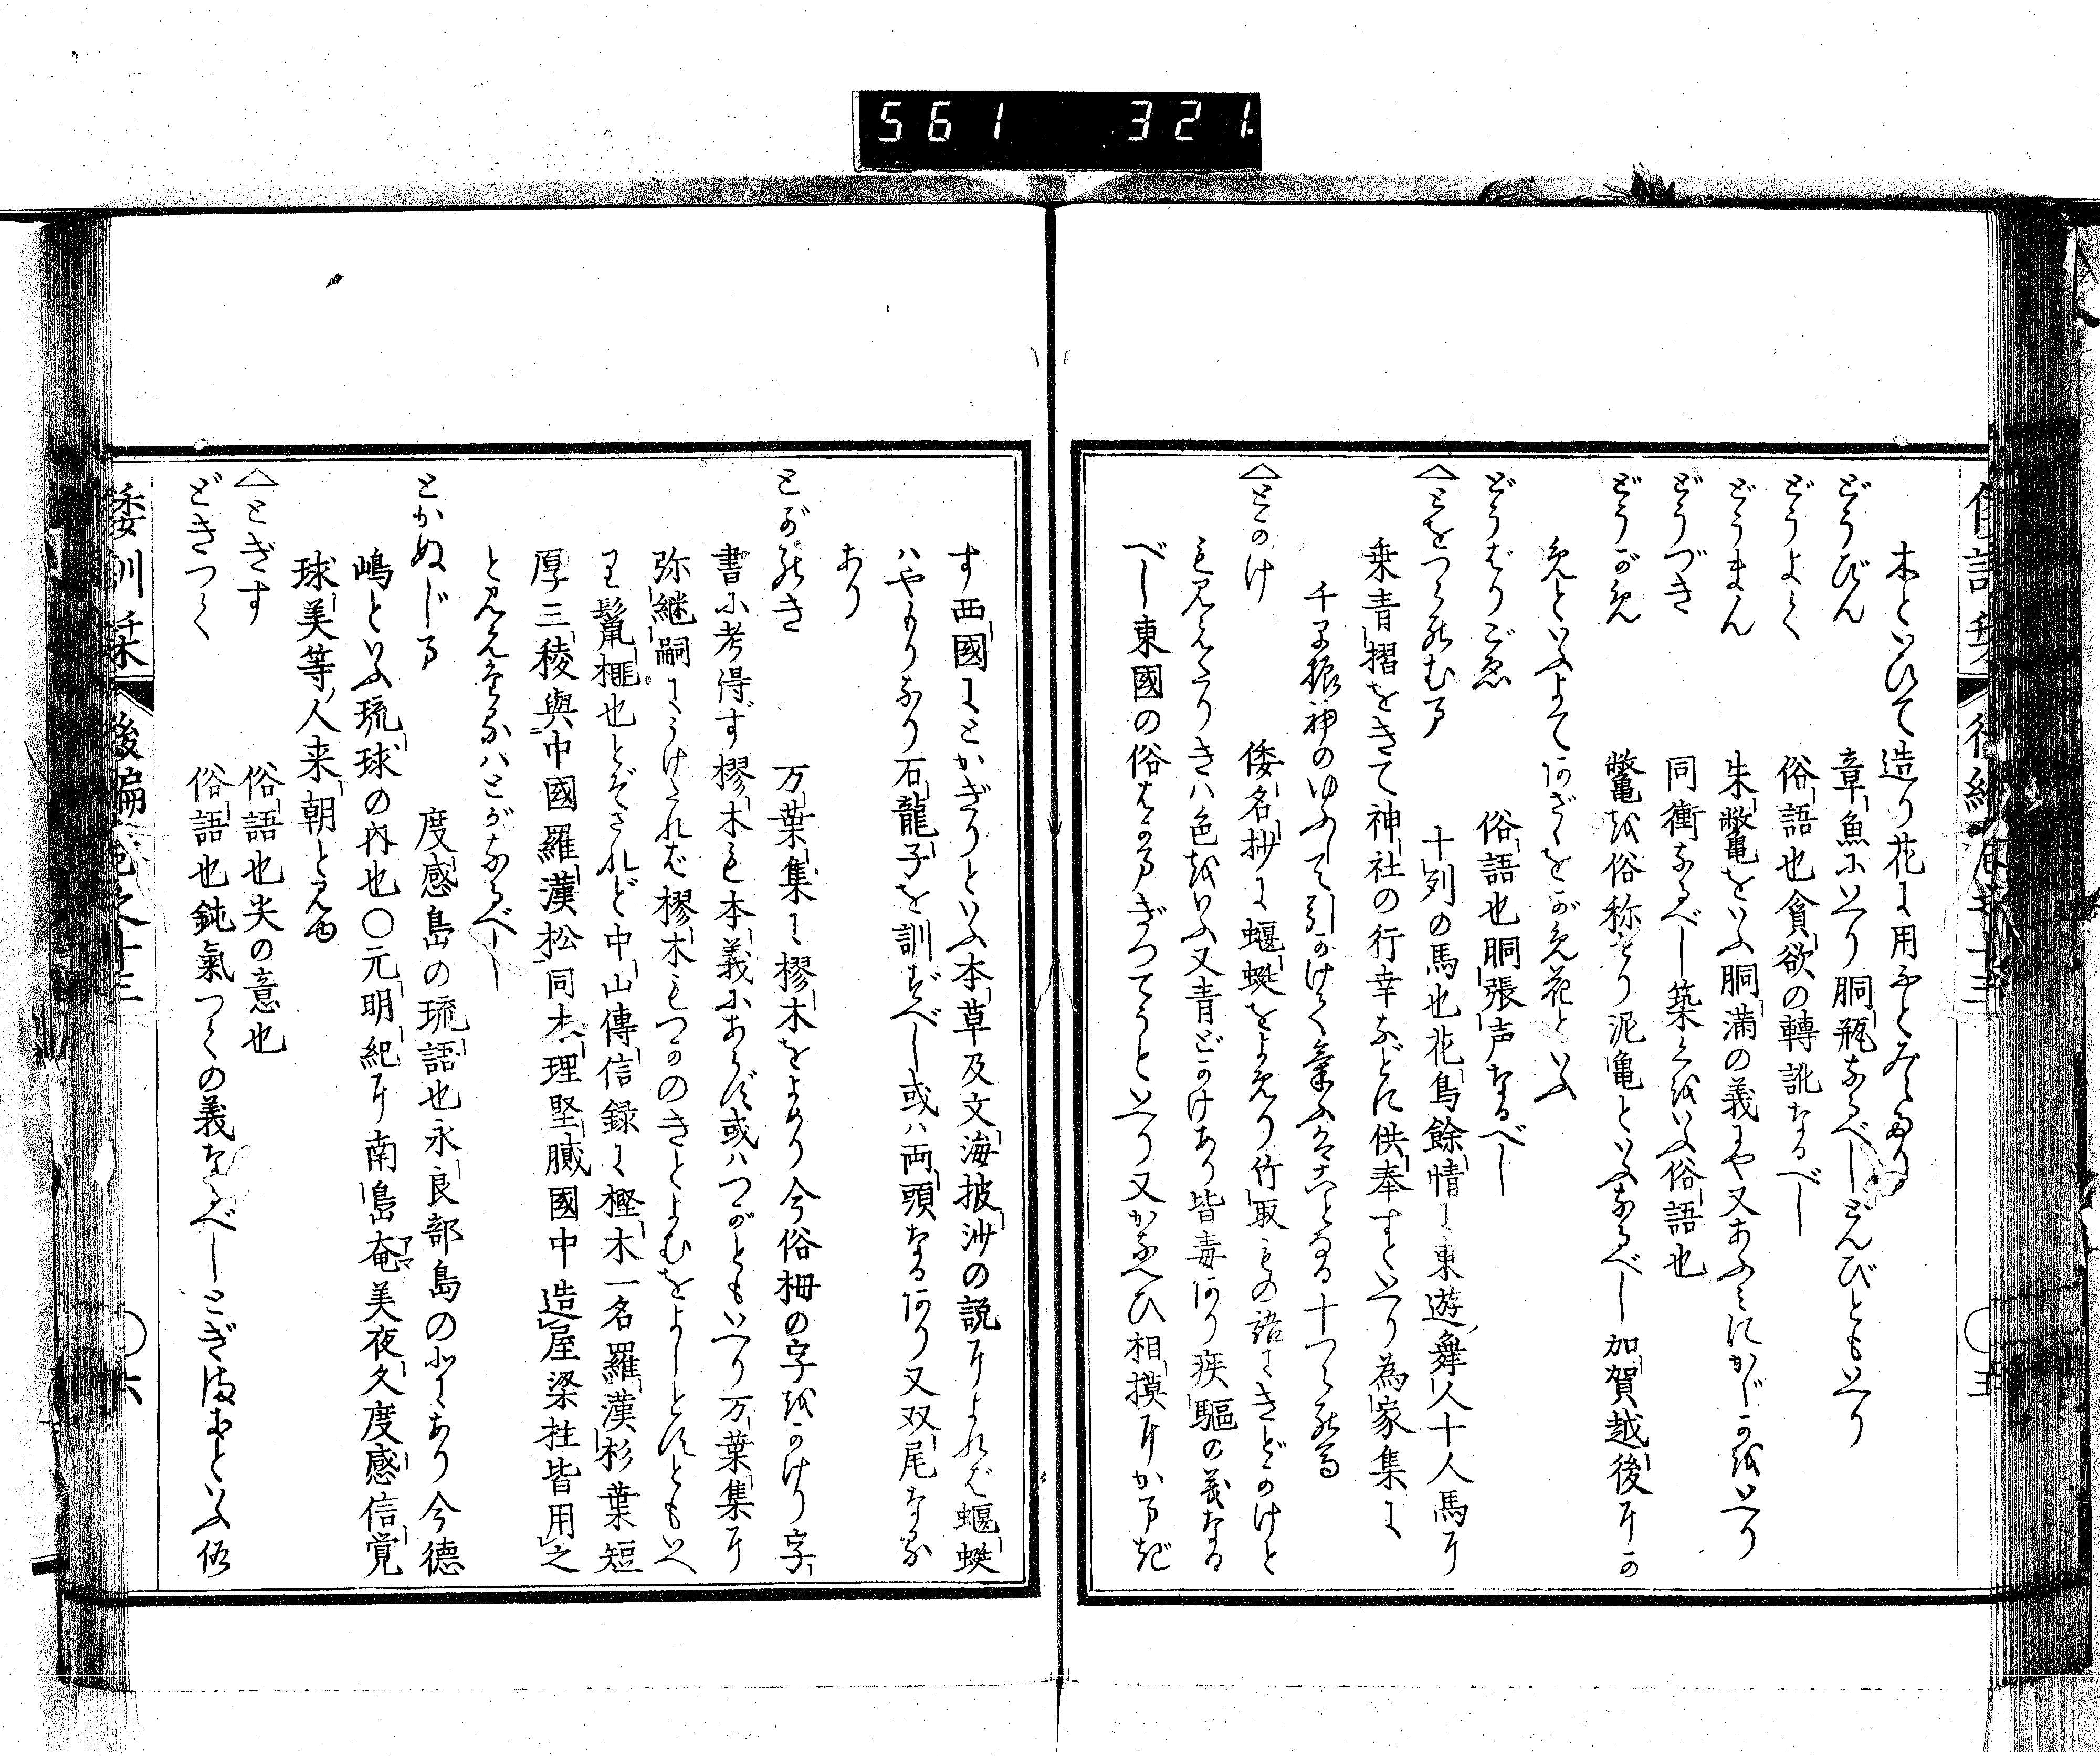 561 321
木といひて造り花に用ゐとみえたり
どうびん 章魚にいへり胴瓶なるべしどんびともいへり
どうよく 俗語也貪欲の轉訛なるべし
どうまん 朱鼈をいふ胴満の義にや又あふみにかじかをいへり
どうづき 同衝なるべし築くをいふ俗語也
どうがめ 鼈を俗称せり泥亀といふなるべし加賀越後にか
めといふよてあざをがめ花といふ
どうばりごゑ 俗語也胴張声なるべし
△とをつらのむま 十列の馬也花鳥餘情に東遊舞人十人馬に
乗青摺をきて神社の行幸などに供奉すといへり為家集に
千早振神のゆふして引かけて
△とかけ 倭名抄に蝘蜓をよめり竹取もの語にきどかけと
も見えたりきハ色をいふ又青どかけあり皆毒あり疾驅の義なる
べし東國の俗はかまぎつてうといへり又かなへひ相摸にかまぎ
す西國にとかぎりといふ本草及文海披沙の説によれば蝘蜓
ハやもりなり石龍子を訓ずべし或ハ両頭なるあり又双尾なる
あり
とがのき 万葉集に樛木をよめり今俗栂の字をかけり字
書に考得ず樛木も本義にあらず或ハつがともいへり万葉集に
弥継嗣にうけたれば樛木もつがのきとよむをよしとすともいへ
り鬣榧也とぞされど中山傳信録に樫木一名羅漢杉葉短
厚三稜與中國羅漢松同木理堅膩國中造屋梁柱皆用之
と見えたるハとがなるべし
とかぬじま 度感島の琉語也永良部島の北にあり今德
嶋といふ琉球の内也〇元明紀に南島奄美夜久度感信覚
アマ
球美等人来朝と見ゆ
△とぎす 俗語也尖の意也
どきつく 俗語也鈍氣つくの義なるべしとぎまぎといふ俗
倭訓栞 後編巻之十三 〇六